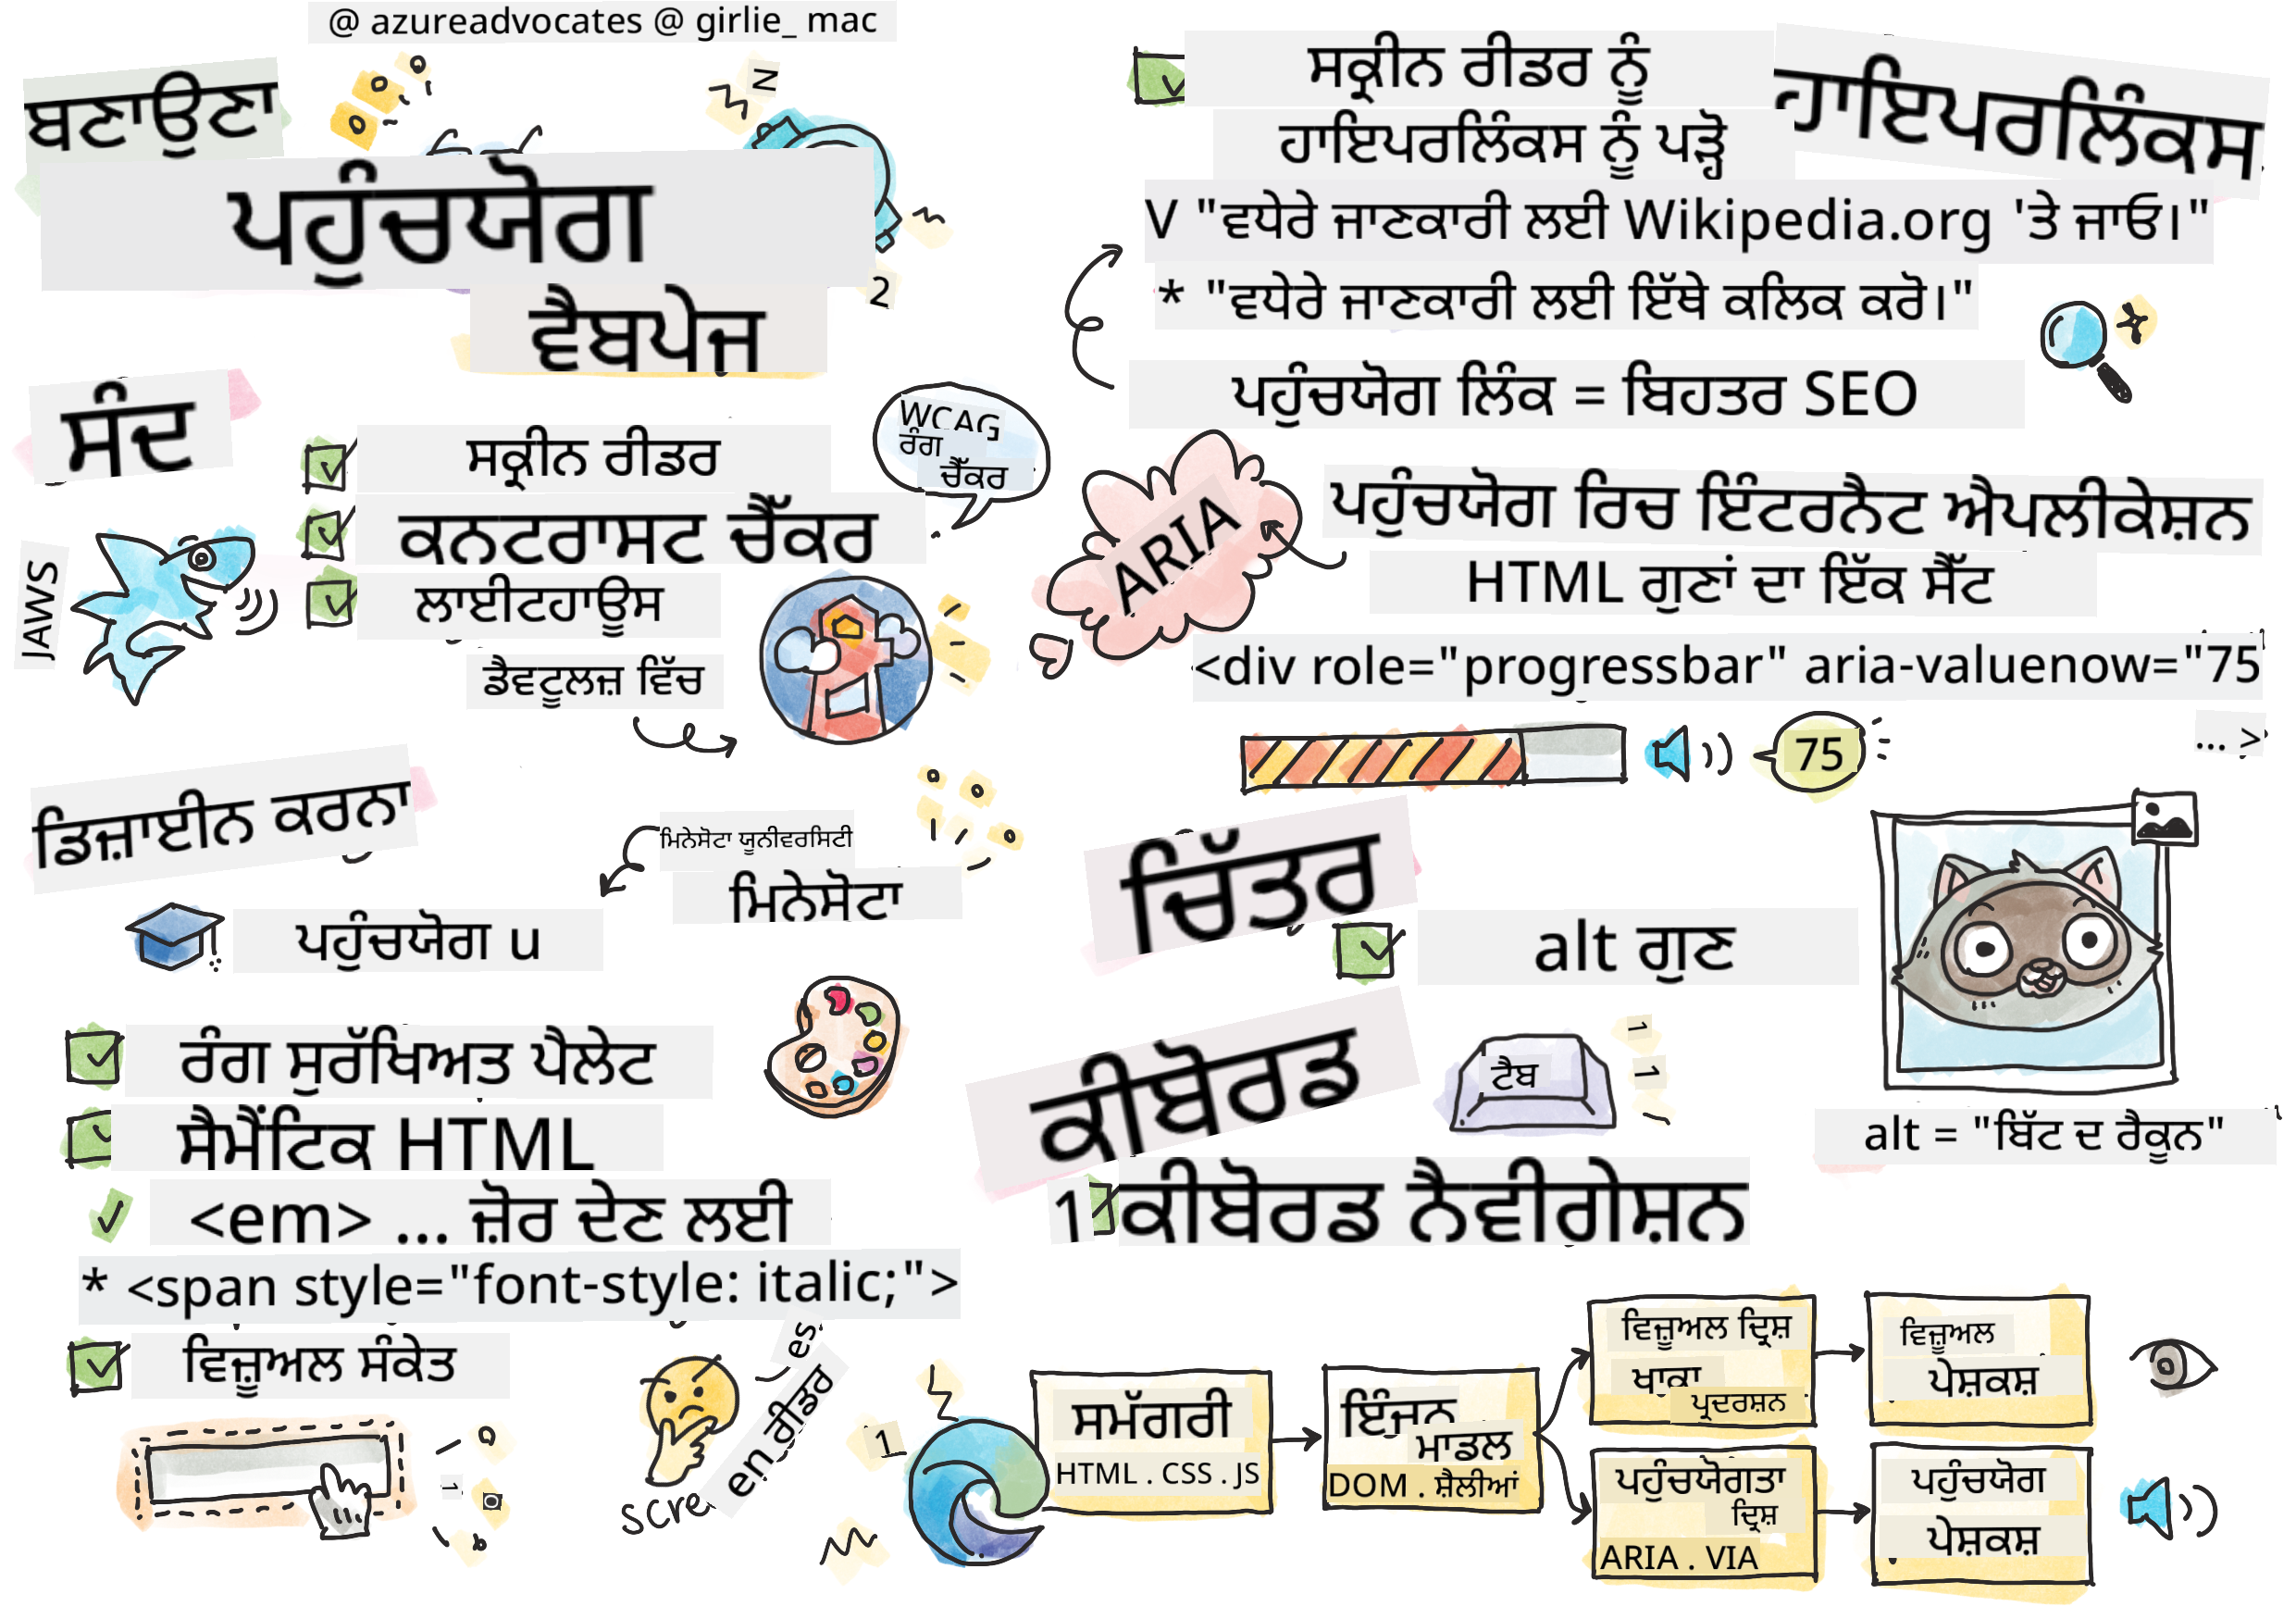 @ azureadvocates @ girlie_ mac
ਬਣਾਉਣਾ
ਪਹੁੰਚਯੋਗ
ਵੈਬਪੇਜ
ਸੰਦ
ਸਕ੍ਰੀਨ ਰੀਡਰ
ਕਨਟਰਾਸਟ ਚੈੱਕਰ
ਲਾਈਟਹਾਊਸ
ਡੈਵਟੂਲਜ਼ ਵਿੱਚ
WCAG
ਰੰਗ
ਚੈੱਕਰ
JAWS
ਡਿਜ਼ਾਈਨ ਕਰਨਾ
ਮਿਨੇਸੋਟਾ ਯੂਨੀਵਰਸਿਟੀ
ਮਿਨੇਸੋਟਾ
ਪਹੁੰਚਯੋਗ u
ਰੰਗ ਸੁਰੱਖਿਅਤ ਪੈਲੇਟ
ਸੈਮੈਂਟਿਕ HTML
<em> ... ਜ਼ੋਰ ਦੇਣ ਲਈ
* <span style="font-style: italic;">
ਵਿਜ਼ੂਅਲ ਸੰਕੇਤ
es
en ਰੀਡਰ
scre
ਸਕ੍ਰੀਨ ਰੀਡਰ ਨੂੰ
ਹਾਇਪਰਲਿੰਕਸ ਨੂੰ ਪੜ੍ਹੋ
ਹਾਇਪਰਲਿੰਕਸ
V "ਵਧੇਰੇ ਜਾਣਕਾਰੀ ਲਈ Wikipedia.org 'ਤੇ ਜਾਓ।"
* "ਵਧੇਰੇ ਜਾਣਕਾਰੀ ਲਈ ਇੱਥੇ ਕਲਿਕ ਕਰੋ।"
ਪਹੁੰਚਯੋਗ ਲਿੰਕ = ਬਿਹਤਰ SEO
ARIA
ਪਹੁੰਚਯੋਗ ਰਿਚ ਇੰਟਰਨੈਟ ਐਪਲੀਕੇਸ਼ਨ
HTML ਗੁਣਾਂ ਦਾ ਇੱਕ ਸੈੱਟ
<div role="progressbar" aria-valuenow="75
... >
75
ਚਿੱਤਰ
alt ਗੁਣ
alt = "ਬਿੱਟ ਦ ਰੈਕੂਨ"
ਕੀਬੋਰਡ
ਟੈਬ
1 ਕੀਬੋਰਡ ਨੈਵੀਗੇਸ਼ਨ
ਸਮੱਗਰੀ
HTML . CSS . JS
ਇੰਜਨ
ਮਾਡਲ
DOM . ਸ਼ੈਲੀਆਂ
ਵਿਜ਼ੂਅਲ ਦ੍ਰਿਸ਼
ਖਾਕਾ
ਪ੍ਰਦਰਸ਼ਨ
ਵਿਜ਼ੂਅਲ
ਪੇਸ਼ਕਸ਼
ਪਹੁੰਚਯੋਗਤਾ
ਦ੍ਰਿਸ਼
ARIA . VIA
ਪਹੁੰਚਯੋਗ
ਪੇਸ਼ਕਸ਼